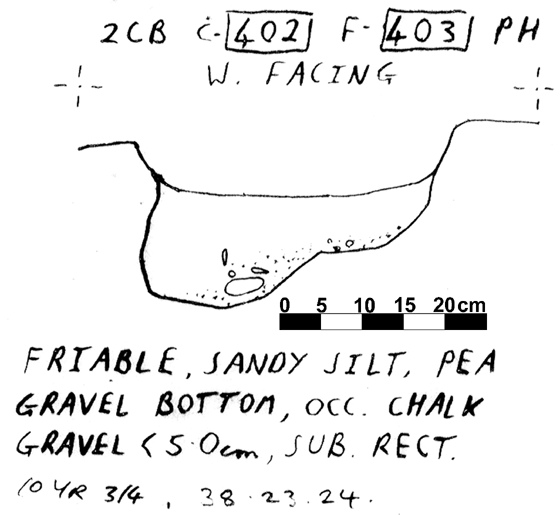 2CB C-402 F-403 PH
W. FACING
0 5 10 15 20cm
FRIABLE, SANDY SILT, PEA
GRAVEL BOTTOM, OCC. CHALK
GRAVEL < 5.0cm, SUB. RECT.
10YR 3/4, 38.23.24.